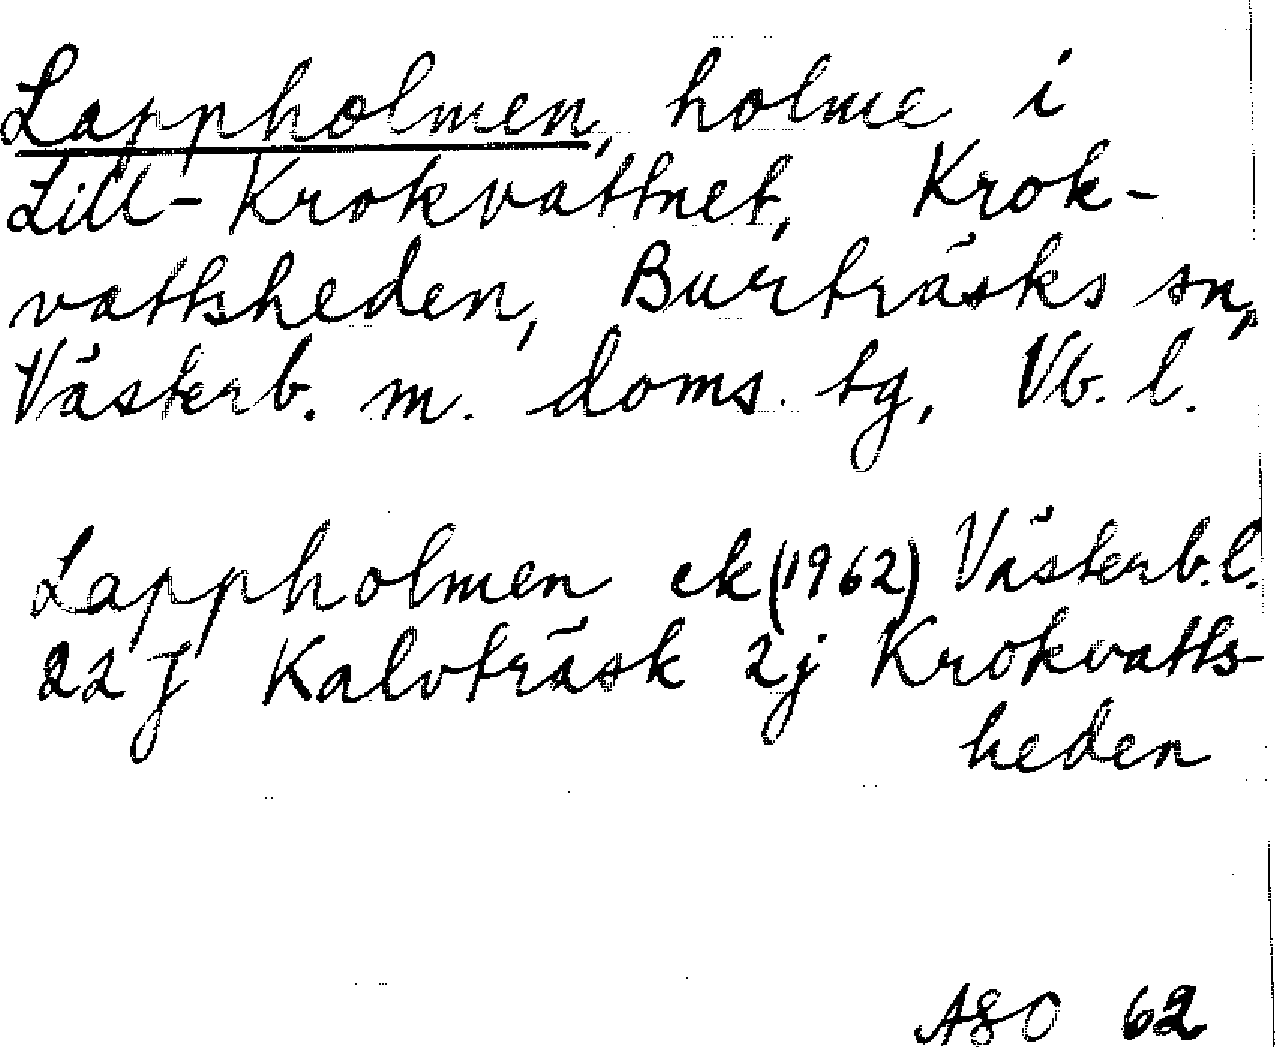 Lappholmen, holme i
Lill-Krokvattnet, Krok-
vattsheden, Burträsks sn,
Västerb. m. doms. tg, Vb. l.
Lappholmen ek (1962) Västerb. l.
22 J Kalvträsk 2j Krokvatts-
heden
ASO 62